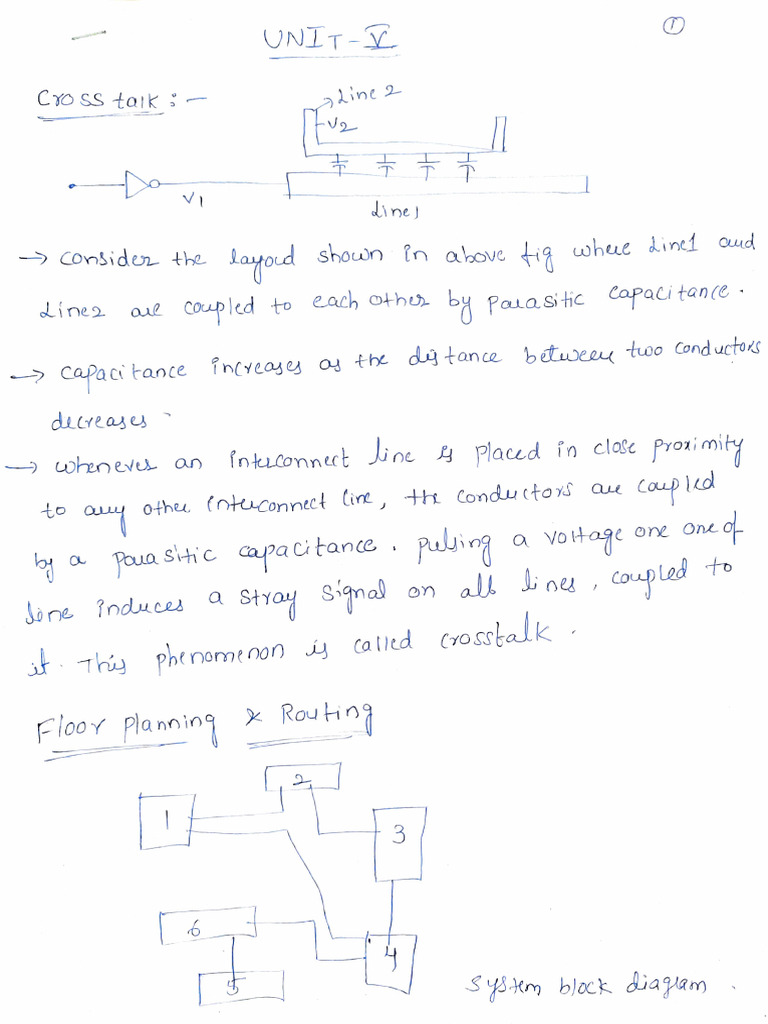 ①
UNIT-V
Cross talk :-
Line 2
V2
V1
Line1
→ consider the layout shown in above fig where Line1 and
Line2 are coupled to each other by parasitic capacitance.
→ capacitance increases as the distance between two conductors
decreases.
→ whenever an interconnect line is placed in close proximity
to any other interconnect line, the conductors are coupled
by a parasitic capacitance. pulsing a voltage one one of
line induces a stray signal on all lines, coupled to
it. This phenomenon is called crosstalk.
Floor planning & Routing
2
1
3
6
4
5
system block diagram.